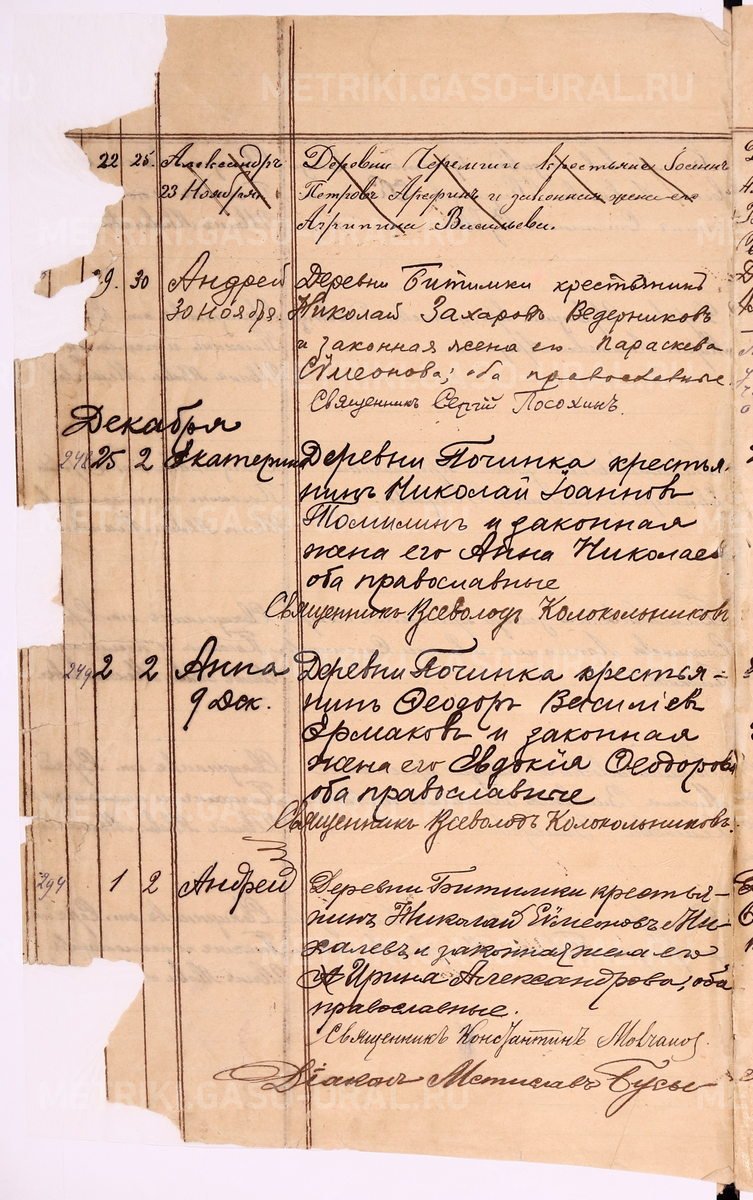 METRIKI.GASO-URAL.RU
22 25. Александръ Деревни Черемши крестьянинъ Іоаннъ
23 Ноября Петровъ Арефинъ и законная жена его
Агрипина Васильева.
29. 30 Андрей Деревни Битимки крестьянинъ
30 Ноября. Николай Захаровъ Ведерниковъ
и законная жена его Параскева
Сѵмеонова; оба православные.
Священникъ Сергій Посохинъ.
Декабря
248 25 2 Екатерина Деревни Починка крестья-
нинъ Николай Іоанновъ
Томилинъ и законная
жена его Анна Николаев
оба православные
Священникъ Всеволодъ Колокольниковъ
249 2 2 Анна Деревни Починка крестья=
9 Дек. нинъ Ѳеодоръ Василіев
Ермаковъ и законная
жена его Евдокія Ѳеодорова
оба православные
Священникъ Всеволодъ Колокольниковъ.
294 1 2 Андрей Деревни Битимки крестья-
нинъ Николай Сѵмеоновъ Ми-
халевъ и законная жена его
Ирина Александрова; оба
православные.
Священникъ Константинъ Молчанов
Діаконъ Мстиславъ